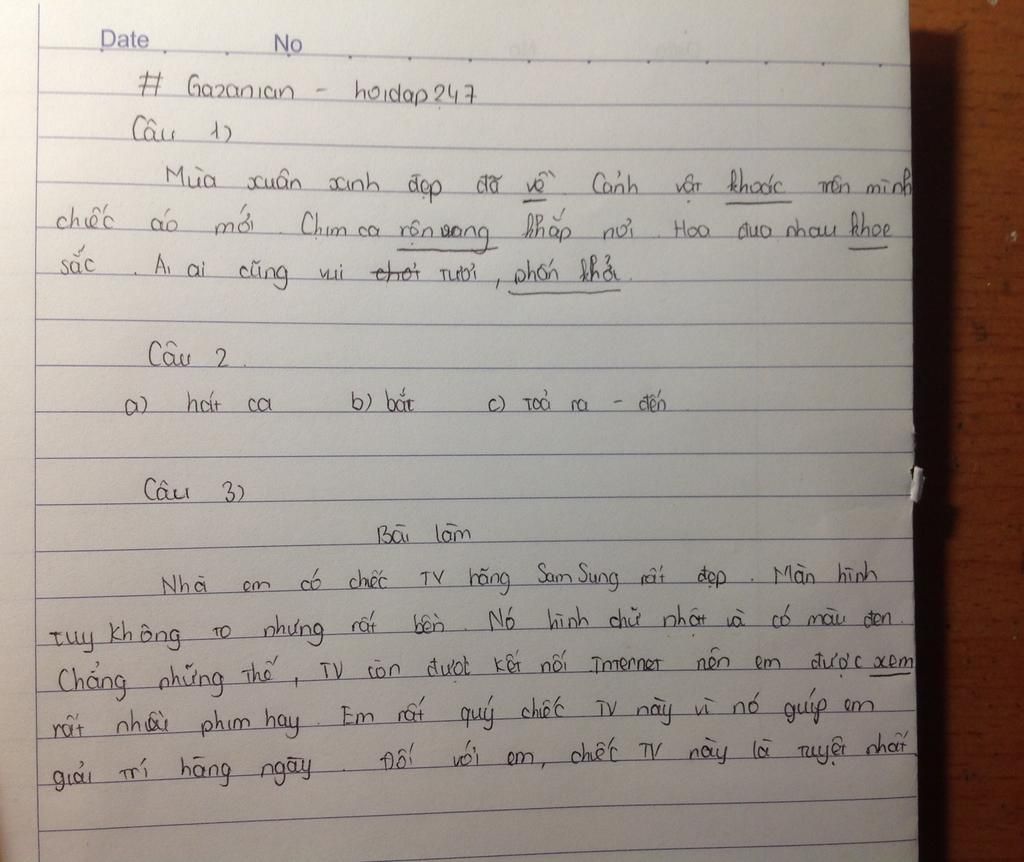 Date No
# Gazanian - hoidap247
Câu 1)
Mùa xuân xinh đẹp đã về Cảnh vật khoác trên mình
chiếc áo mới. Chim ca rộn vang khắp nơi. Hoa đua nhau khoe
sắc. Ai ai cũng vui chơi tươi, phấn khởi.
Câu 2.
a) hát ca b) bắt c) toả ra - đến
Câu 3)
Bài làm
Nhà em có chiếc TV hãng SamSung rất đẹp. Màn hình
tuy không to nhưng rất bền. Nó hình chữ nhật và có màu đen.
Chẳng những thế, TV còn được kết nối Internet nên em được xem
rất nhiều phim hay. Em rất quý chiếc TV này vì nó giúp em
giải trí hằng ngày. Đối với em, chiếc TV này là tuyệt nhất.